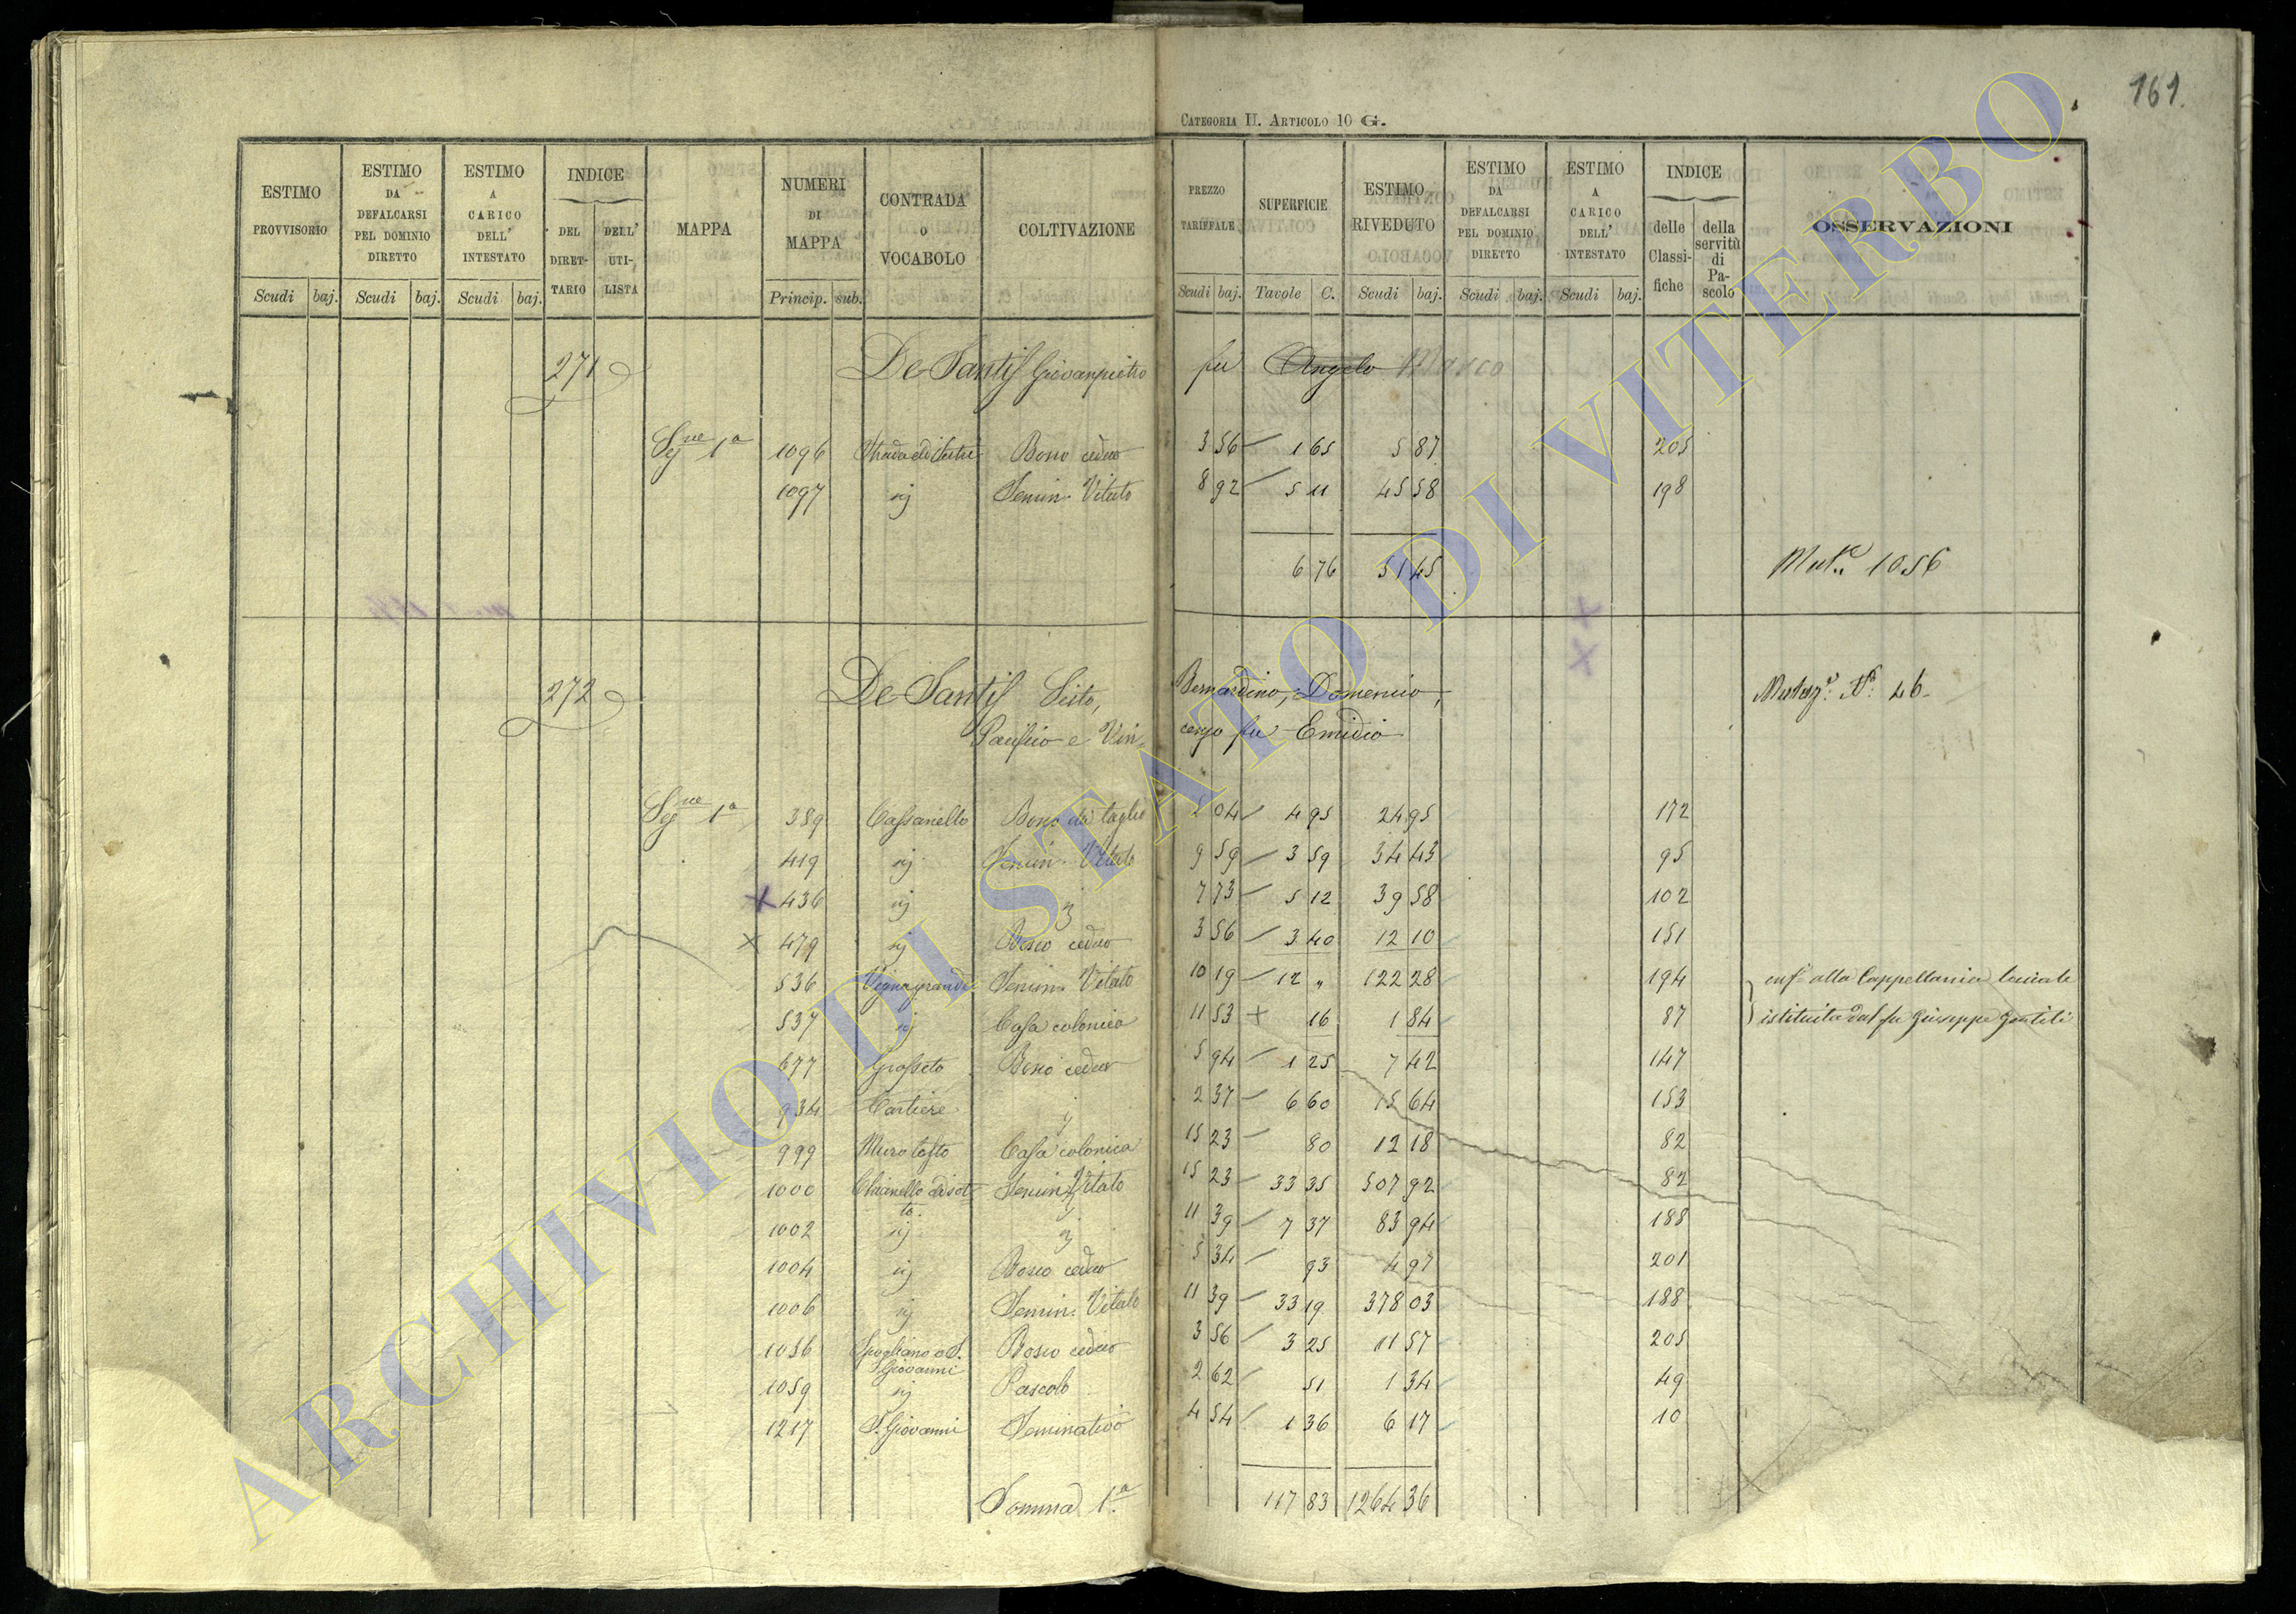 161.
CATEGORIA II. ARTICOLO 10 G.
ESTIMO PROVVISORIO Scudi baj.
ESTIMO DA DEFALCARSI PEL DOMINIO DIRETTO Scudi baj.
ESTIMO A CARICO DELL' INTESTATO Scudi baj.
INDICE DEL DIRETTARIO DELL' UTILISTA
MAPPA
NUMERI DI MAPPA Princip. sub.
CONTRADA O VOCABOLO
COLTIVAZIONE
PREZZO TARIFFALE Scudi baj.
SUPERFICIE Tavole C.
ESTIMO RIVEDUTO Scudi baj.
ESTIMO DA DEFALCARSI PEL DOMINIO DIRETTO Scudi baj.
ESTIMO A CARICO DELL' INTESTATO Scudi baj.
INDICE delle Classifiche della servitù di Pascolo
OSSERVAZIONI
271 De Santis Giovanpietro fu Angelo Marco
Sez.ne 1a 1096 Strada di Sutri Bosco ceduo 3 56 1 65 5 87 205
1097 ij Semin. Vitato 8 92 5 11 45 58 198
6 76 51 45
Mut.e 1056
272 De Santis Sisto, Bernardino, Domenico, Mutaz.e N. 46
Pacifico e Vincenzo fu Emidio
Sez.ne 1a 389 Cassanello Bosco da taglio 5 04 4 95 24 95 172
419 ij Semin. Vitato 9 59 3 59 34 43 95
x 436 ij ij 7 73 5 12 39 58 102
x 479 ij Bosco ceduo 3 56 3 40 12 10 151
536 Vignagrande Semin. Vitato 10 19 12 „ 122 28 194 enf.a alla Cappellania laicale
537 ij Casa colonica 11 53 + 16 1 84 87 istituita dal fu Giuseppe Gentili
677 Grosseto Bosco ceduo 5 94 1 25 7 42 147
934 Cartiere ij 2 37 6 60 15 64 153
999 Muro tosto Casa colonica 15 23 80 12 18 82
1000 Chianello di sotto Semin. Vitato 15 23 33 35 507 92 82
1002 ij ij 11 39 7 37 83 94 188
1004 ij Bosco ceduo 5 34 93 4 97 201
1006 ij Semin. Vitato 11 39 33 19 378 03 188
1056 S. Giovanni Bosco ceduo 3 56 3 25 11 57 205
1059 ij Pascolo 2 62 51 1 34 49
1217 S. Giovanni Seminativo 4 54 1 36 6 17 10
Somma 1.a 117 83 1264 36
ARCHIVIO DI STATO DI VITERBO